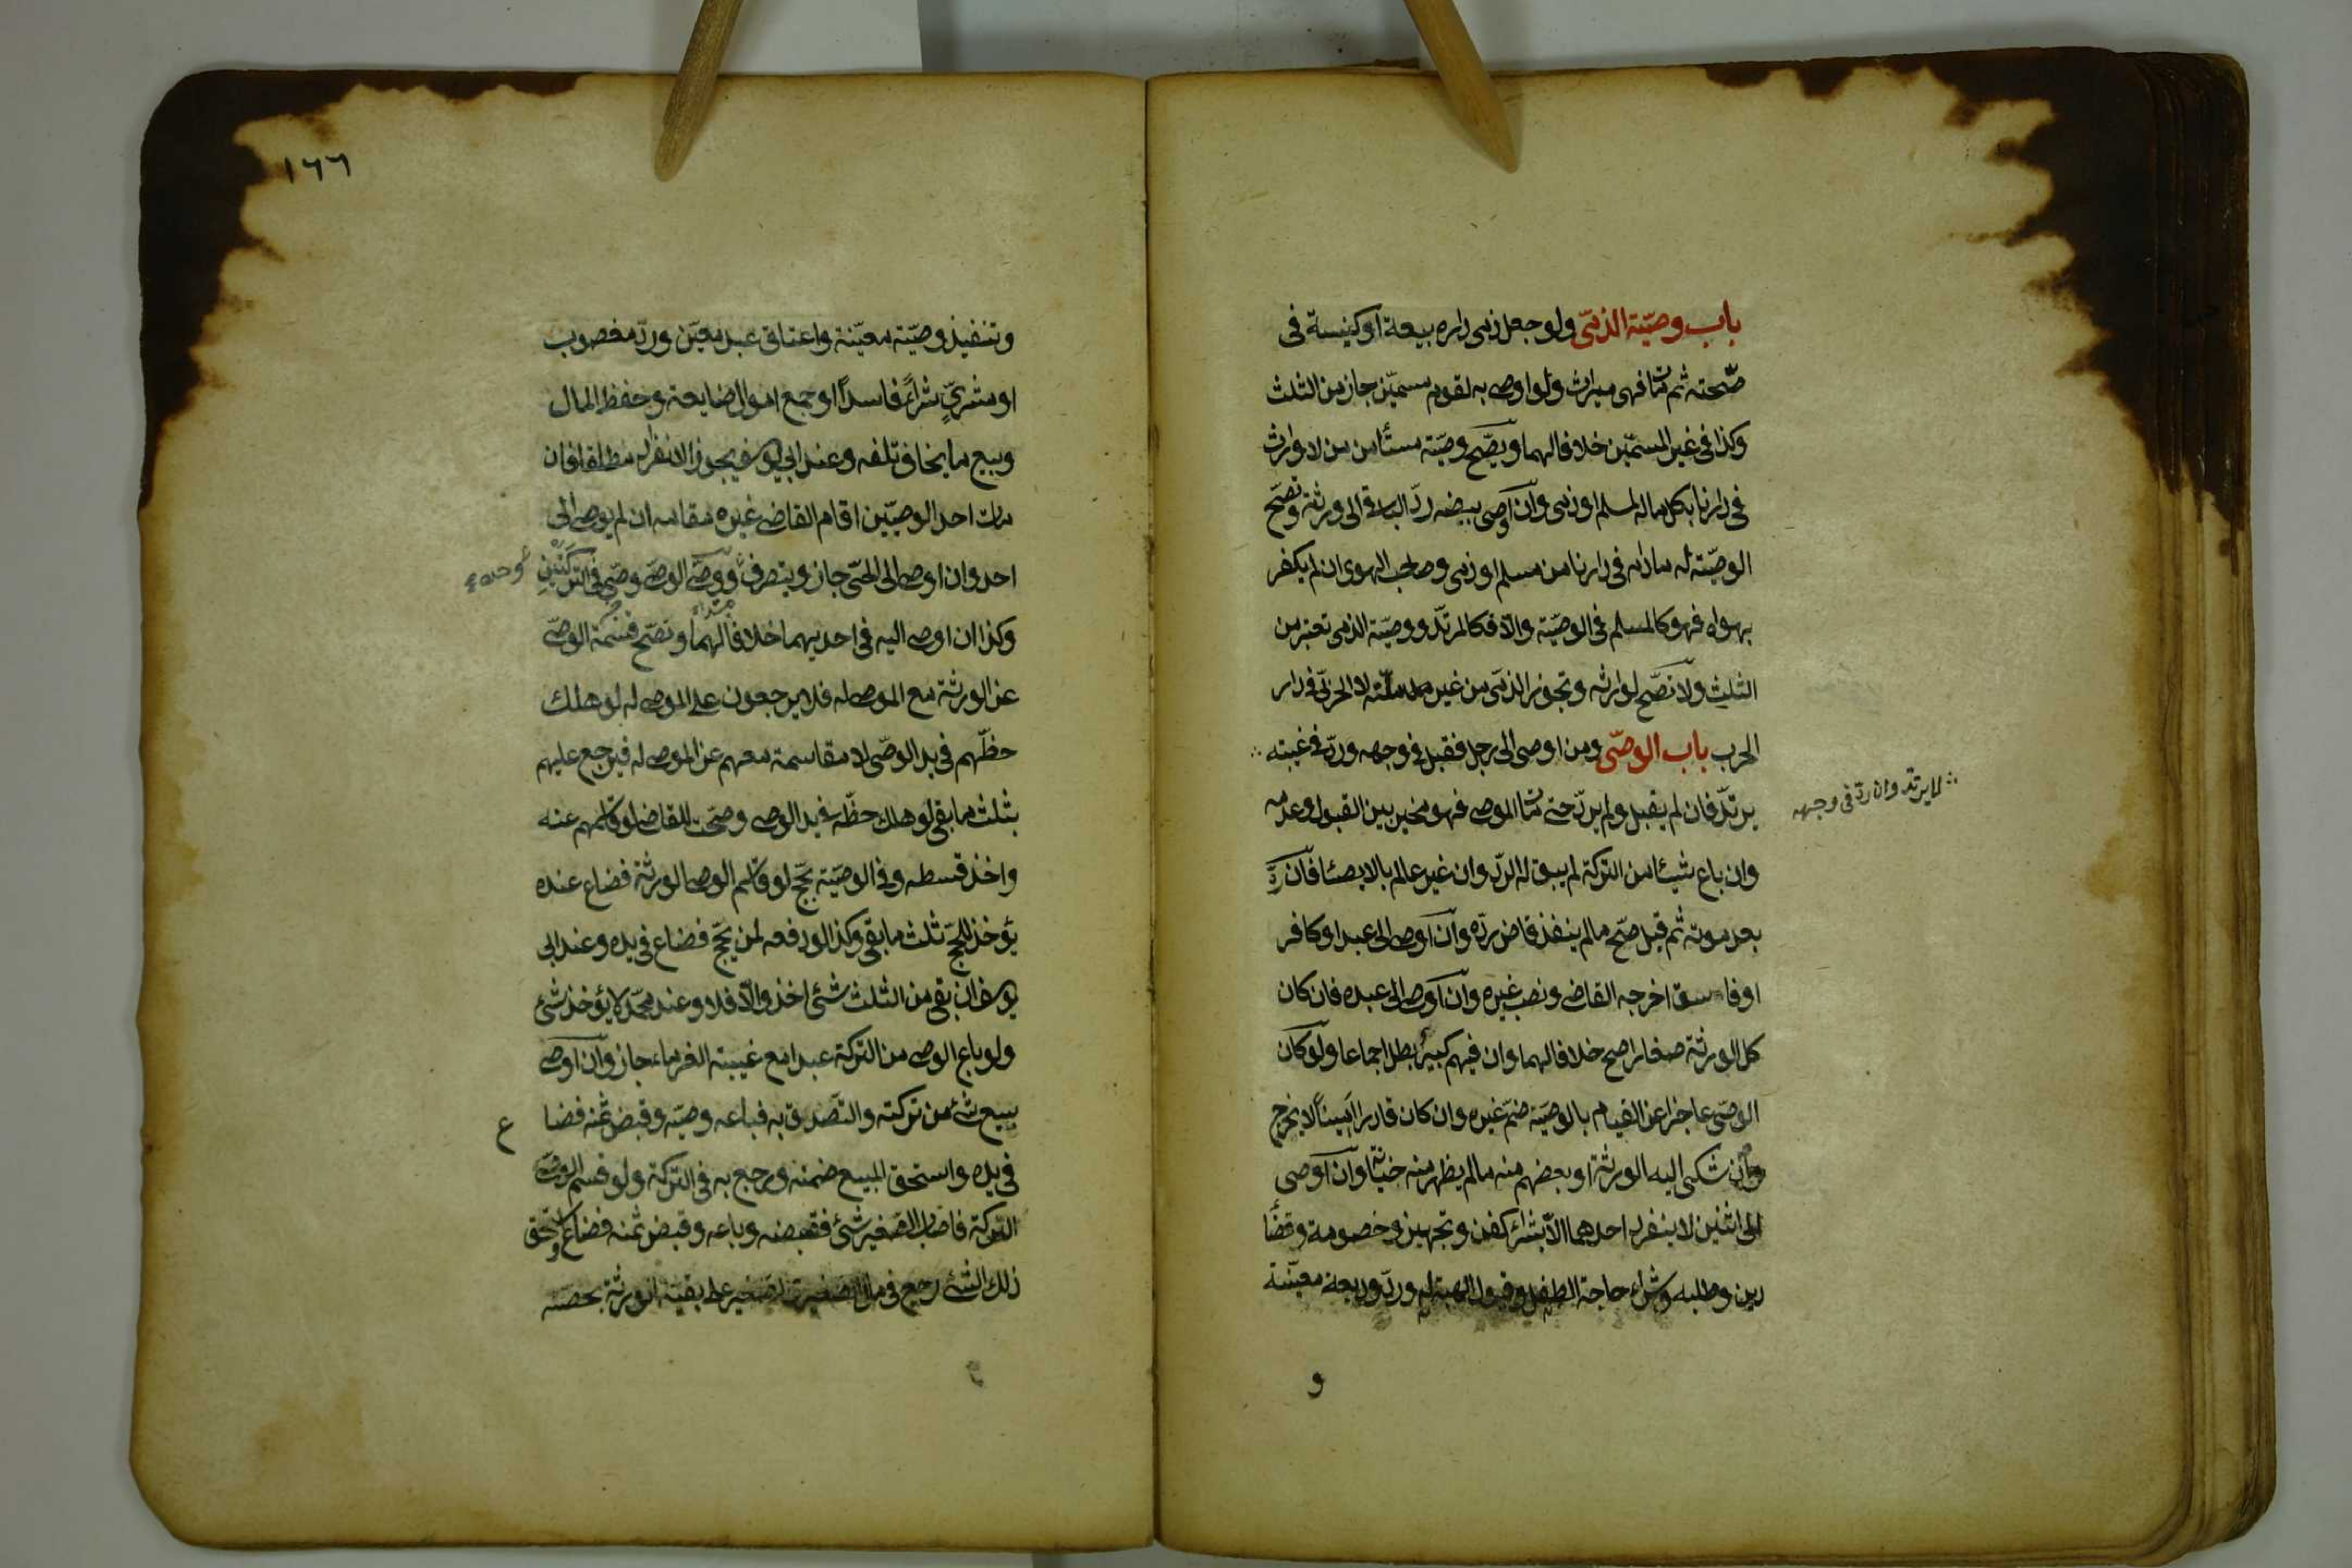 باب وصيّة الذمّى ولو جعل ذمى داره بيعة او كنيسة فى
صحّته ثم مات فهى ميراث ولو اوصى به لقوم مسمّين جاز من الثلث
وكذا فى غير المسمّين خلافا لهما ويصّح وصيّة مستأمن من لا وارث
فى دارنا بكل ماله لمسلم او ذمى وان اوصى ببعضه ردّ الباقى الى ورثته وتصّح
الوصيّة له مادام فى دارنا من مسلم او ذمى وصاحب الهوى ان لم يكفر
بهواه فهو كالمسلم فى الوصيّة والّا فكالمرتدّ ووصيّة الذمى تعتبر من
الثلث ولا تصّح لوارثه وتجوز الذمّى من غير ملّته لا لحربّى فى دار
الحرب باب الوصّى ومن اوصى الى رجل فقبل فى وجهه وردّ فى غيبته
لا يرتد وان ردّ فى وجهه
يرتدّ فان لم يقبل ولم يردّ حتى مات الموصى فهو مخير بين القبول وعدمه
وان باع شيئا من التركة لم يبق له الردّ وان غير عالم بالايصاء فان ردّ
بعد موته ثم قبل صّح مالم ينفذ قاض ردّه وان اوصى الى عبد او كافر
او فاسق اخرجه القاضى ونصب غيره وان اوصى الى عبده فان كان
كل الورثة صغارا صح خلافا لهما وان فيهم كبير بطل اجماعا ولو كان
الوصّى عاجزا عن القيام بالوصيّة ضمّ غيره وان كان قادرا امينا لا يخرج
وان شكى اليه الورثة او بعضهم منه مالم يظهر منه خيانة وان اوصى
الى اثنين لا ينفرد احدهما الّا بشراء كفن وتجهيز وخصومة وقضاء
دين وطلبه وشراء حاجة الطفل وقبول الهبة له وردّ وديعة معيّنة
و
١٦٦
وتنفيذ وصيّة معيّنة واعتاق عبد معيّن وردّ مغصوب
او مشترىٍ شراءً فاسداً او جمع اموال ضايعة وحفظ المال
وبيع ما يخاف تلفه وعند ابى يوسف يجوز الانفراد مطلقا فان
مات احد الوصيّين اقام القاضى غيره مقامه ان لم يوص الى
احد وان اوصى الى الحّى جاز ويتصرف وحده ووصّى الوصّى وصّى فى التركتين
وكذا ان اوصى اليه فى احديهما خلافا لهما وتصّح قسمة الوصّى
عن الورثة مع الموصى له فلا يرجعون على الموصى له لو هلك
حظّهم فى يد الوصّى لا مقاسمة معهم عن الموصى له فيرجع عليهم
بثلث ما بقى لو هلك حظّه فى يد الوصى وصحّت للقاضى لو قاسمهم عنه
واخذ قسطه وفى الوصيّة بحّج لو قاسم الوصى الورثة فضاع عنده
يؤخذ للحّج ثلث ما بقى وكذا لو دفعه لمن يحّج فضاع فى يده وعند ابى
يوسف ان بقى من الثلث شئ اخذ والّا فلا وعند محمّد لا يؤخذ شئ
ولو باع الوصى من التركة عبدا مع غيبة الغرماء جاز وان اوصى
ببيع شئ من تركته والتصّدق به فباعه وصيّه وقبض ثمنه فضاع
فى يده واستحق المبيع ضمنه ورجع به فى التركة ولو قسم الوصّى
التركة فاصاب الصغير شئ فقبضه وباعه وقبض ثمنه فضاع واستحق
ذلك الشئ رجع فى مال الصغير والصغير على بقيّة الورثة بحصته